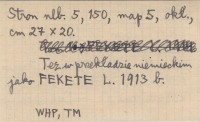 Stron nlb. 5, 150, map 5, okł.,
cm 27 x 20.
Też w przekładzie niemieckim
jako FEKETE L. 1913 b.
WHP, TM